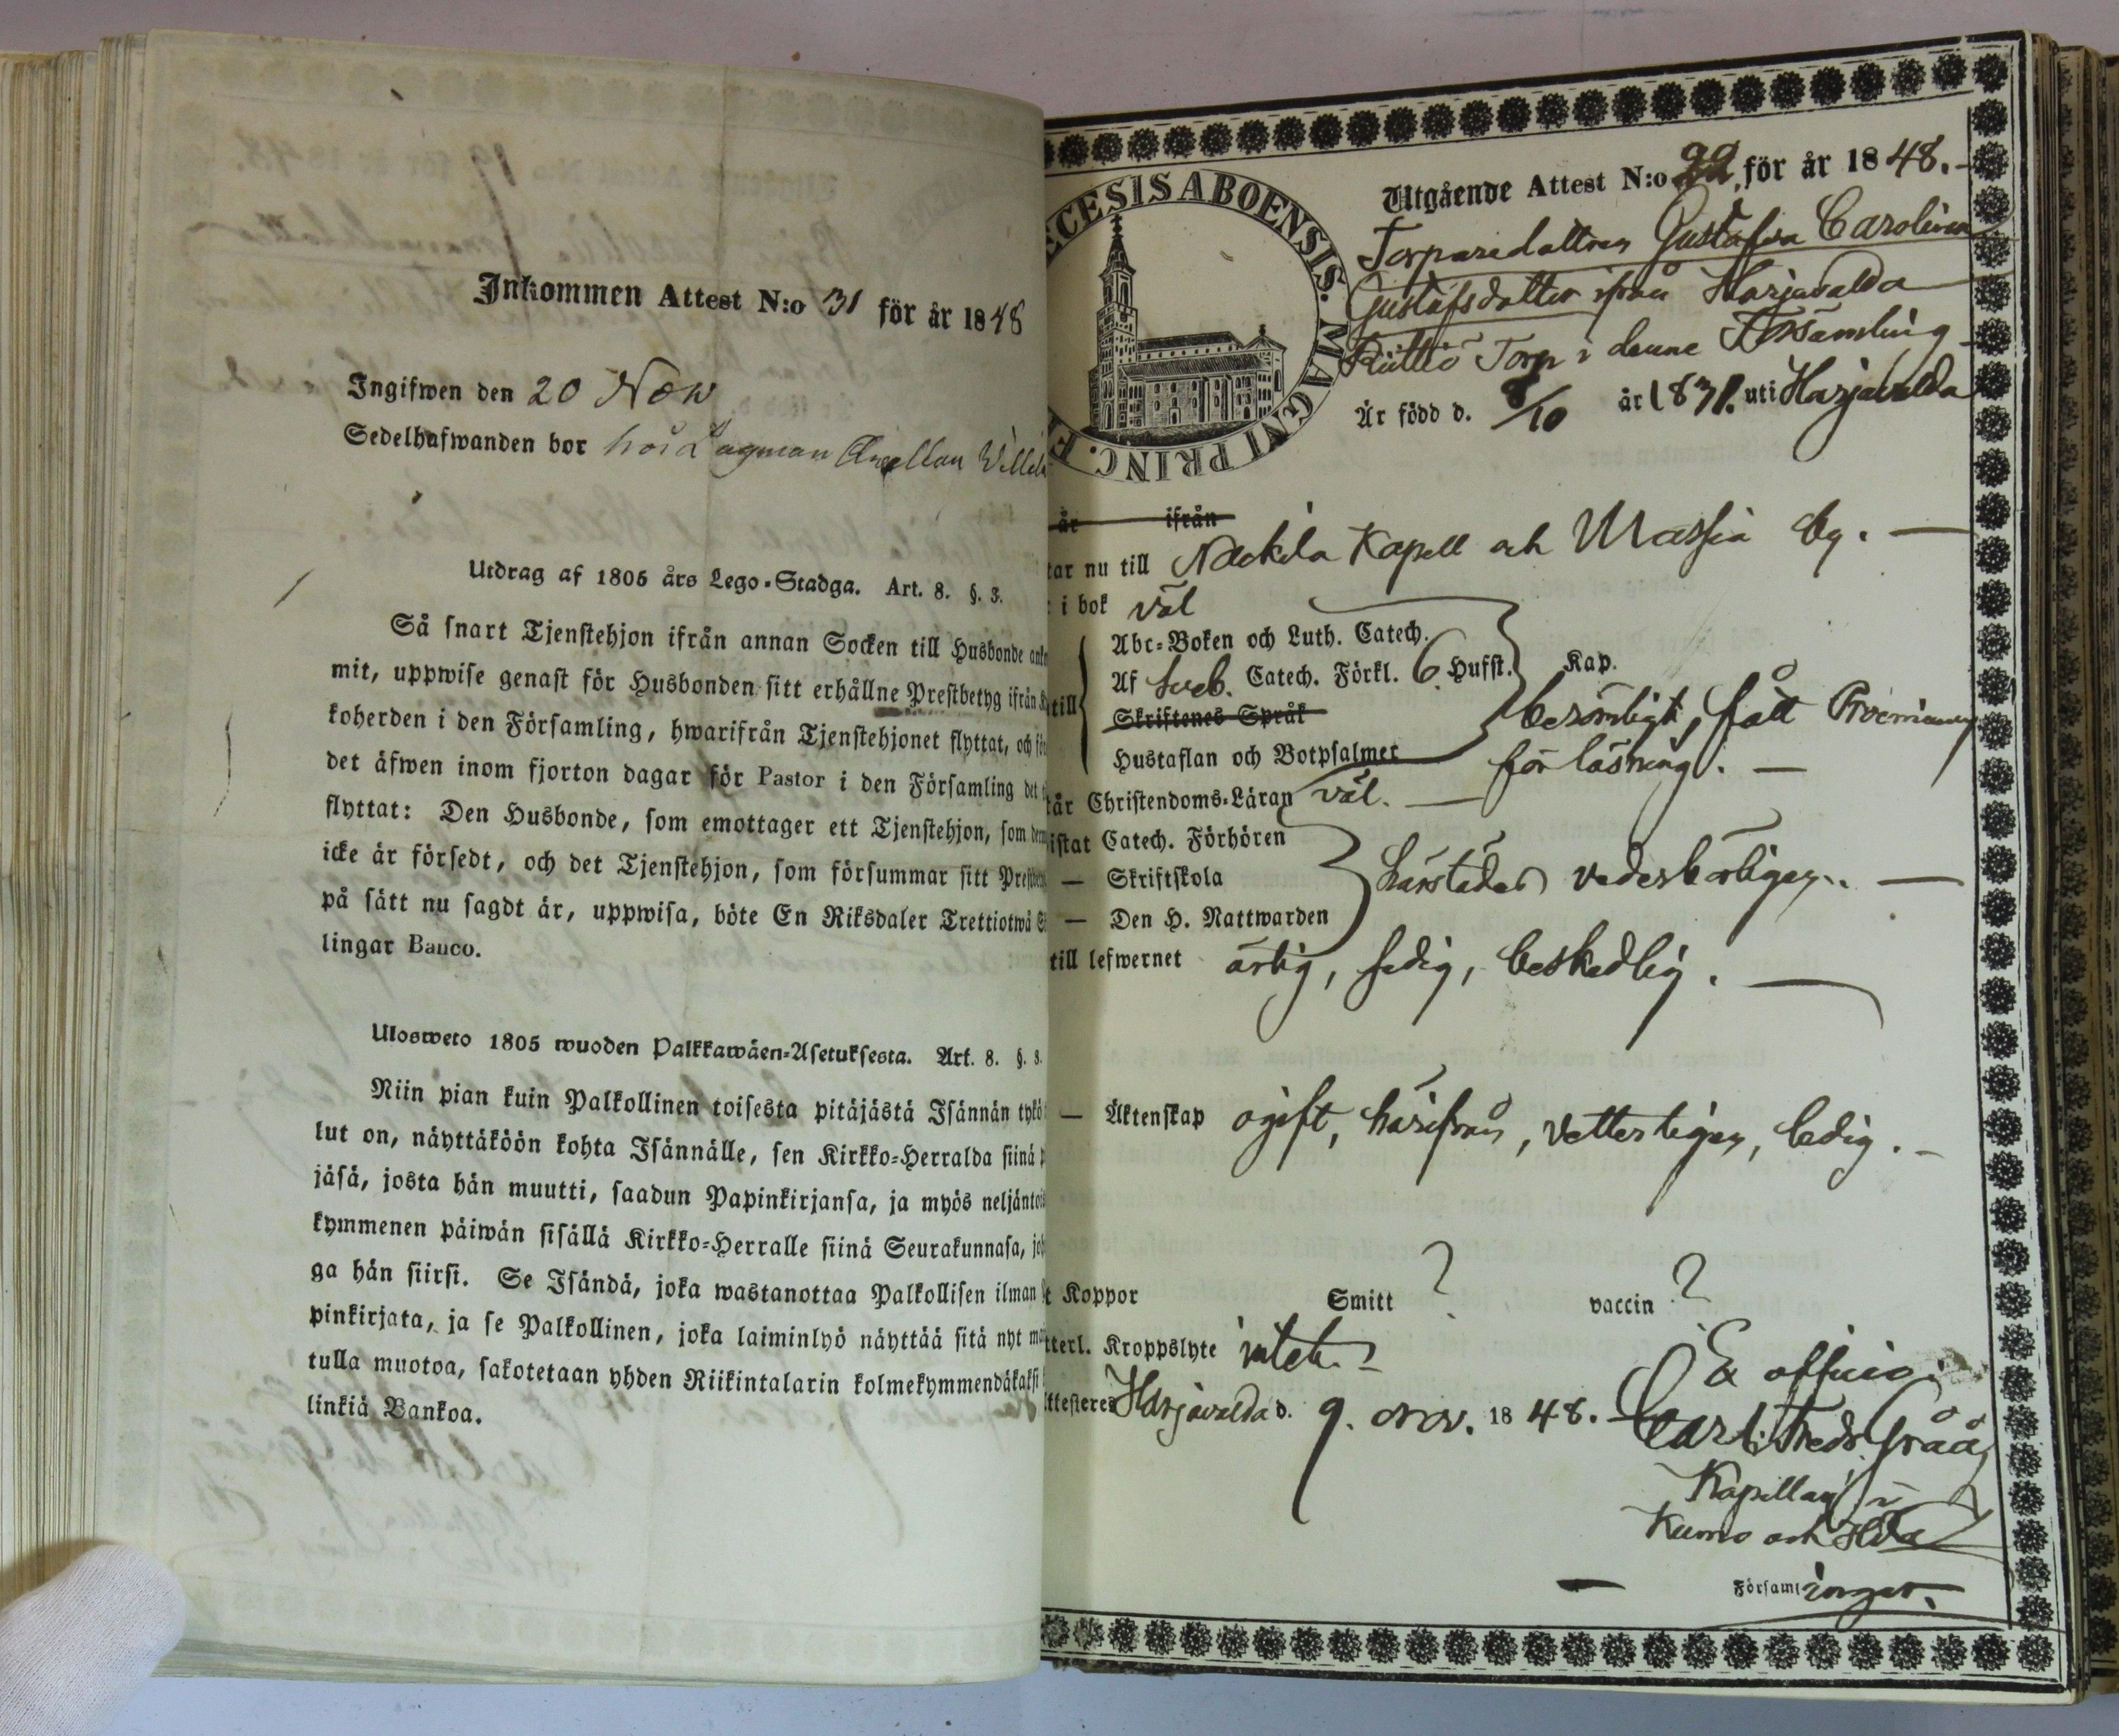 Inkommen Attest N:o 31 för år 1848
Ingifwen den 20 Nov
Sedelhafwanden bor hos Lagman
Utdrag af 1805 års Lego-Stadga. Art. 8. §. 3.
Så snart Tjenstehjon ifrån annan Socken till Husbonde
mit, uppwise genast för Husbonden sitt erhållne Prestbetyg ifrån
koherden i den Församling, hwarifrån Tjenstehjonet flyttat, och
det äfwen inom fjorton dagar för Pastor i den Församling det
flyttat: Den Husbonde, som emottager ett Tjenstehjon, som
icke är försedt, och det Tjenstehjon, som försummar sitt
på sätt nu sagdt är, uppwisa, böte En Riksdaler Trettiotwå
lingar Banco.
Ulosweto 1805 wuoden Palkkawäen-Asetuksesta. Art. 8. §. 3.
Niin pian kuin Palkollinen toisesta pitäjästä Isännän tykö
lut on, näyttäköön kohta Isännälle, sen Kirkko-Herralda siinä
jäsä, josta hän muutti, saadun Papinkirjansa, ja myös neljäntois
kymmenen päiwän sisällä Kirkko-Herralle siinä Seurakunnasa,
ga hän siirsi. Se Isändä, joka wastanottaa Palkollisen ilman
pinkirjata, ja se Palkollinen, joka laiminlyö näyttää sitä nyt
tulla muotoa, sakotetaan yhden Riikintalarin kolmekymmendäkaksi
linkiä Bankoa.
ECESIS ABOENSIS. MAGNI PRINC. F
Utgående Attest N:o 22, för år 1848.
Torparedottren Gustafva Carolina
Gustafsdotter ifrån Harjavalda
Torp i denne Församling
Är född d. 8/10 år 1831. uti Harjavalda
år ifrån
tar nu till Nackila Kapell och Massia by.
i bok väl
Abc-Boken och Luth. Catech.
till Af Sveb. Catech. Förkl. 6 Hufst. Kap.
Skriftenes Språk berömligt, fått Præmium
Hustaflan och Botpsalmer för läsning.
tår Christendoms-Läran väl.
istat Catech. Förhören
— Skriftskola härstädes vederbörligen.
— Den H. Nattwarden
till lefwernet ärlig, sedig, beskedlig.
— Äktenskap ogift, härifrån, vetterligen, ledig.
t Koppor Smitt ? vaccin ?
tterl. Kroppslyte intet.
Attesteres Harjavalda d. 9. nov. 1848. Ex officio:
Carl Fredr Gråå
Kapellan i
Kumo och Hvda
Församlingar.